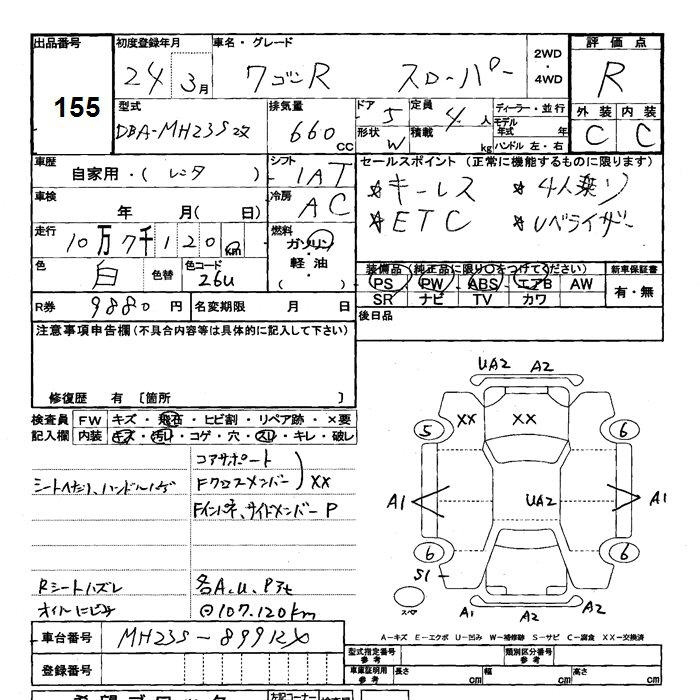 出品番号 初度登録年月 車名・グレード 評価点
155 24 3月 ワゴンR スローパー 2WD・4WD R
型式 排気量 ドア 5 定員 4人 ディーラー・並行 外装 内装
DBA-MH23S改 660 CC 形状 W 積載 kg モデル年式 年 ハンドル 左・右 C C
車歴 シフト セールスポイント (正常に機能するものに限ります)
自家用・( レンタ ) IAT ★キーレス ★4人乗り
車検 年 月( 日) 冷房 AC ★ETC ★レベライザー
走行 10万7千120km 燃料 ガソリン 軽・油 ( )
色 白 色替 色コード 26U 装備品 (純正品に限り○をつけてください) 新車保証書
PS PW ABS エアB AW 有・無
R券 9880円 名変期限 月 日 SR ナビ TV カワ
注意事項申告欄(不具合内容等は具体的に記入して下さい) 後日品
修復歴 有 〔箇所 〕
検査員 FW キズ・飛石・ヒビ割・リペア跡・×要
記入欄 内装 キズ・汚レ・コゲ・穴・スレ・キレ・破レ
コアサポート
シートへたり、ハンドルハゲ Fクロスメンバー XX
Fインパネ、サイドメンバー P
Rシートハズレ 各A.U.P
オイルにじみ 107.120km
UA2 A2
XX XX
5 6
A1 UA2 A1
6 6
S1
スペア A1 A2 A2
A-キズ E-エクボ U-凹み W-補修跡 S-サビ C-腐食 XX-交換済
車台番号 MH23S-899
登録番号 型式指定番号 参考 類別区分番号 参考
車庫証明用 参考 長さ 幅 高さ
希望ブロック 左記コーナー